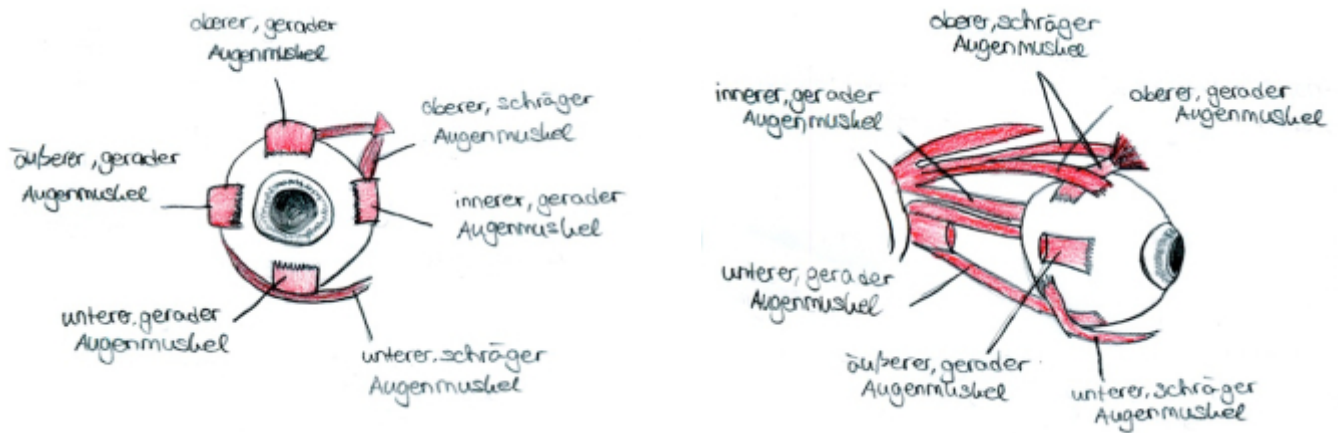 oberer, gerader
Augenmuskel
oberer, schräger
Augenmuskel
äußerer, gerader
Augenmuskel
innerer, gerader
Augenmuskel
unterer, gerader
Augenmuskel
unterer, schräger
Augenmuskel
oberer, schräger
Augenmuskel
innerer, gerader
Augenmuskel
oberer, gerader
Augenmuskel
unterer, gerader
Augenmuskel
äußerer, gerader
Augenmuskel
unterer, schräger
Augenmuskel